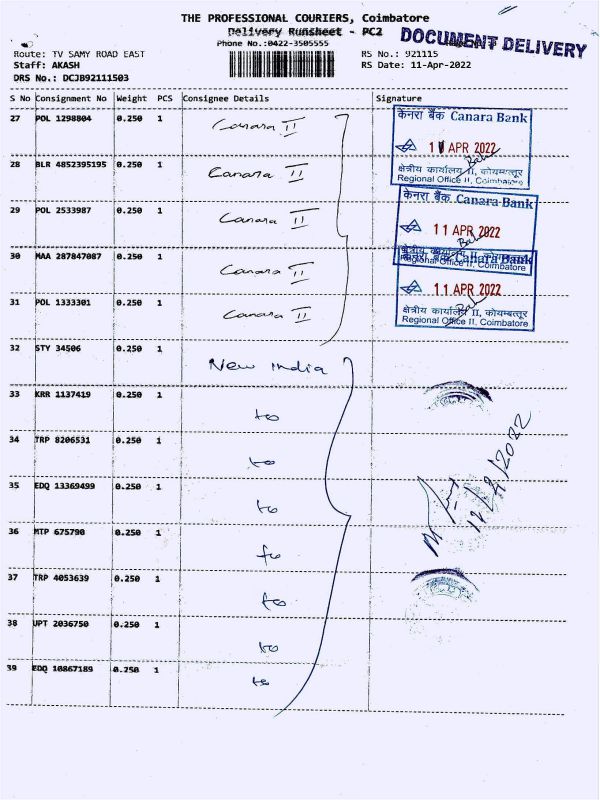 THE PROFESSIONAL COURIERS, Coimbatore
Delivery Runsheet - PC2
DOCUMENT DELIVERY
Phone No.:0422-3505555
Route: TV SAMY ROAD EAST
RS No.: 921115
Staff: AKASH
RS Date: 11-Apr-2022
DRS No.: DCJB92111503
S No Consignment No Weight PCS Consignee Details Signature
27 POL 1298804 0.250 1 Canara II
28 BLR 4852395195 0.250 1 Canara II
29 POL 2533987 0.250 1 Canara II
30 MAA 287847087 0.250 1 Canara II
31 POL 1333301 0.250 1 Canara II
केनरा बैंक Canara Bank
11 APR 2022
क्षेत्रीय कार्यालय II, कोयम्बत्तूर
Regional Office II, Coimbatore
केनरा बैंक Canara Bank
11 APR 2022
Regional Office II, Coimbatore
Canara Bank
11 APR 2022
क्षेत्रीय कार्यालय II, कोयम्बत्तूर
Regional Office II, Coimbatore
32 STY 34506 0.250 1 New India
33 KRR 1137419 0.250 1 to
34 TRP 8206531 0.250 1 to
35 EDQ 13369499 0.250 1 to
36 MTP 675790 0.250 1 to
37 TRP 4053639 0.250 1 to
38 UPT 2036750 0.250 1 to
39 EDQ 10867189 0.250 1 to
12/4/2022